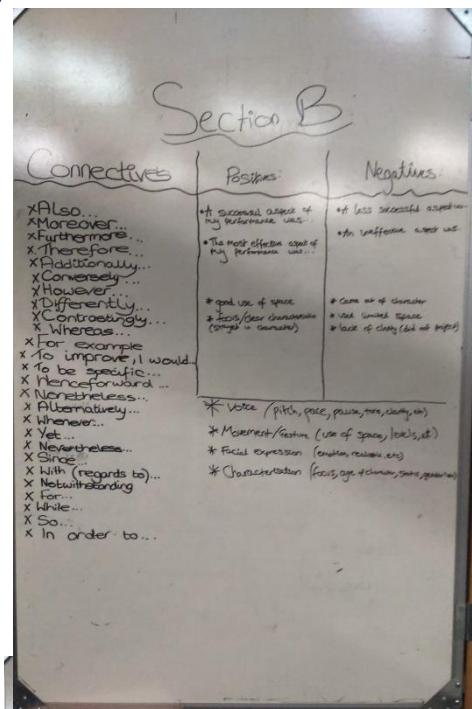 Section B
Connectives
x Also...
x Moreover...
x Furthermore...
x Therefore...
x Additionally...
x Conversely...
x However...
x Differently...
x Contrastingly...
x Whereas...
x For example
x To improve, I would...
x To be specific...
x Henceforward...
x Nonetheless...
x Alternatively...
x Whenever...
x Yet...
x Nevertheless...
x Since...
x With (regards to)...
x Notwithstanding
x For...
x While...
x So...
x In order to...
Positives:
• A successful aspect of
my performance was...
• The most effective aspect of
my performance was...
* good use of space
* focus/clear characterisation
(stayed in character)
Negatives:
• A less successful aspect was...
• An ineffective aspect was...
* Came out of character
* used limited space
* lack of clarity (did not project)
* Voice (pitch, pace, pause, tone, clarity, etc)
* Movement/Gesture (use of space, levels, etc)
* Facial expression (emotion, realistic, etc)
* Characterisation (focus, age of character, status,